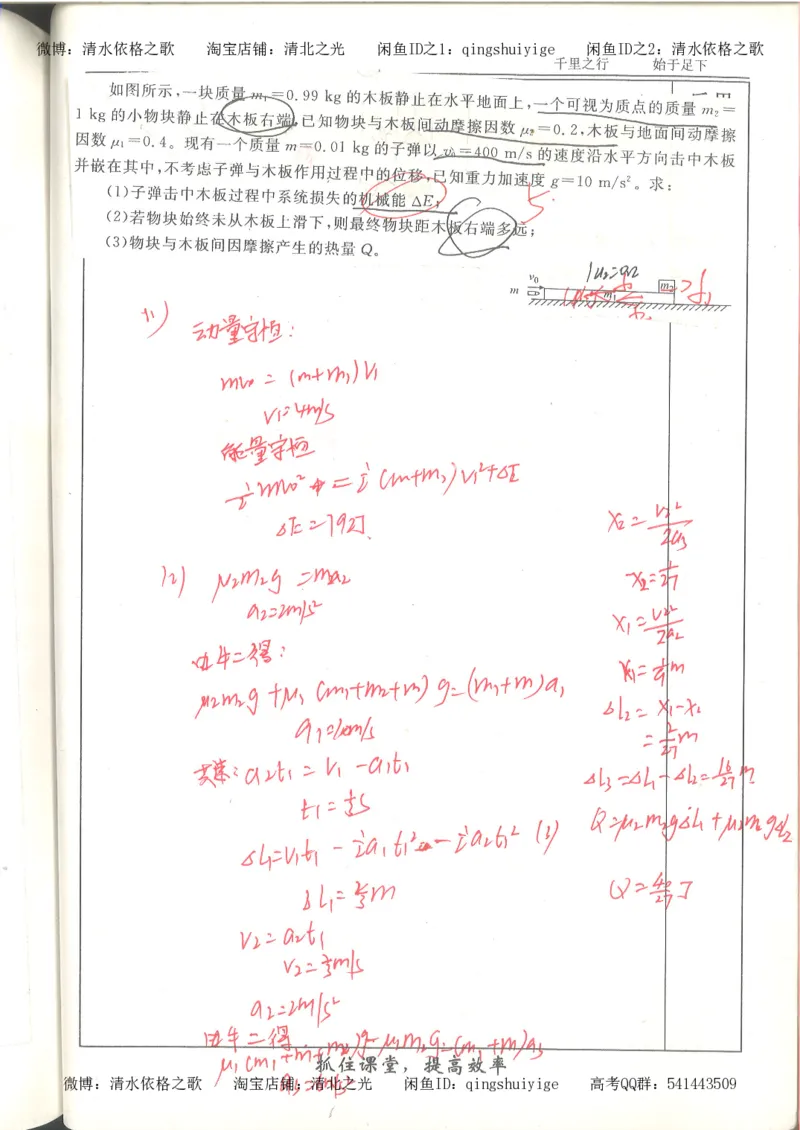 微博：清水依格之歌 淘宝店铺：清北之光 闲鱼ID之1：qingshuiyige 闲鱼ID之2：清水依格之歌
千里之行 始于足下
如图所示,一块质量 m₁=0.99 kg 的木板静止在水平地面上,一个可视为质点的质量 m₂=
1 kg 的小物块静止在木板右端,已知物块与木板间动摩擦因数 μ₂=0.2,木板与地面间动摩擦
因数 μ₁=0.4。现有一个质量 m=0.01 kg 的子弹以 v₀=400 m/s 的速度沿水平方向击中木板
并嵌在其中,不考虑子弹与木板作用过程中的位移,已知重力加速度 g=10 m/s²。求:
(1)子弹击中木板过程中系统损失的机械能 ΔE;
5.
(2)若物块始终未从木板上滑下,则最终物块距木板右端多远;
(3)物块与木板间因摩擦产生的热量 Q。
μ₂=0.2
v₀
m
m₁
m₂
f₁
(1) 动量守恒:
mv₀=(m+m₁)v₁
v₁=4m/s
能量守恒
½mv₀²=½(m+m₁)v₁²+ΔE
ΔE=792J.
(2) μ₂m₂g=ma₂
a₂=2m/s²
由牛二得:
μ₂m₂g+μ₁(m₁+m₂+m)g=(m₁+m)a₁
a₁=10m/s
共速:a₂t₁=v₁-a₁t₁
t₁=⅓s
ΔL₁=v₁t₁-½a₁t₁²-½a₂t₁²
ΔL₁=⅔m
v₂=a₂t₁
v₂=⅔m/s
a₂=2m/s²
由牛二得
μ₁(m₁+m+m₂)g-μ₂m₂g=(m₁+m)a₃
x₂=v₂²/2a₃
x₂=1/27
x₁=v₂²/2a₂
x₁=1/9m
ΔL₂=x₁-x₂
=2/27m
ΔL₃=ΔL₁-ΔL₂=16/27m
(3) Q=μ₂m₂gΔL₁+μ₂m₂gΔL₂
Q=40/27J
抓住课堂，提高效率
微博：清水依格之歌 淘宝店铺：清北之光 闲鱼ID：qingshuiyige 高考QQ群：541443509